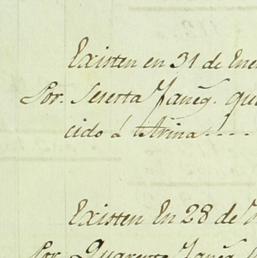 Existen en 31 de Ene
Por. Seserta Faneg. que
cido á
Existen En 28 de
Por Quarenta Faneg